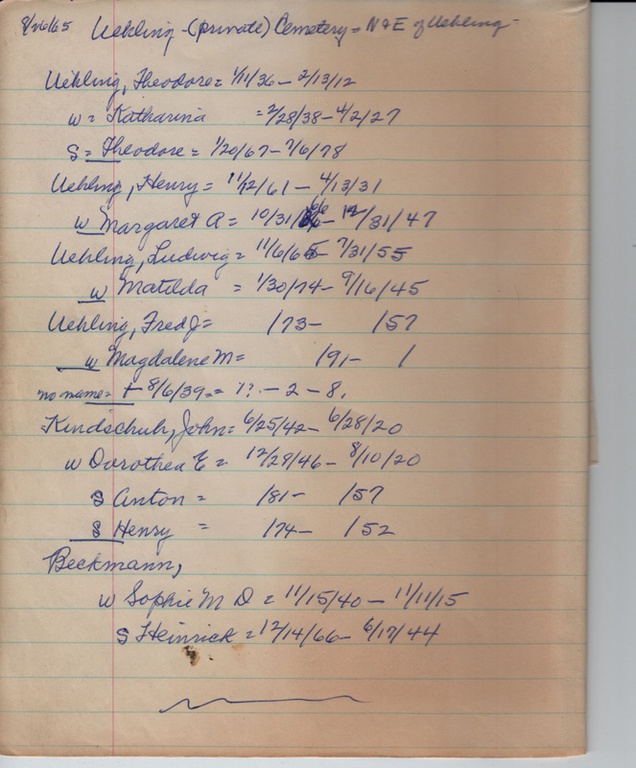 Uehling - (private) Cemetery = N & E of Uehling -
Uehling, Theodore = 1/11/36 - 2/13/12
w = Katharina = 2/28/38 - 4/2/27
S = Theodore = 1/20/67 - 7/6/78
Uehling, Henry = 11/2/61 - 4/13/31
w Margaret A = 10/31/66 - 12/31/47
Uehling, Ludwig = 11/6/65 - 7/31/55
w Matilda = 1/30/74 - 9/16/45
Uehling, Fred J = /73 - /57
w Magdalene M = /91 - /
no name = + 8/6/39 = = 1? - 2 - 8.
Kindschuh, John = 6/25/42 - 6/28/20
w Dorothea E = 12/29/46 - 8/10/20
S Anton = /81 - /57
S Henry = /74 - /52
Beckmann,
w Sophie M D = 11/15/40 - 11/11/15
S Heinrick = 12/14/66 - 6/17/44